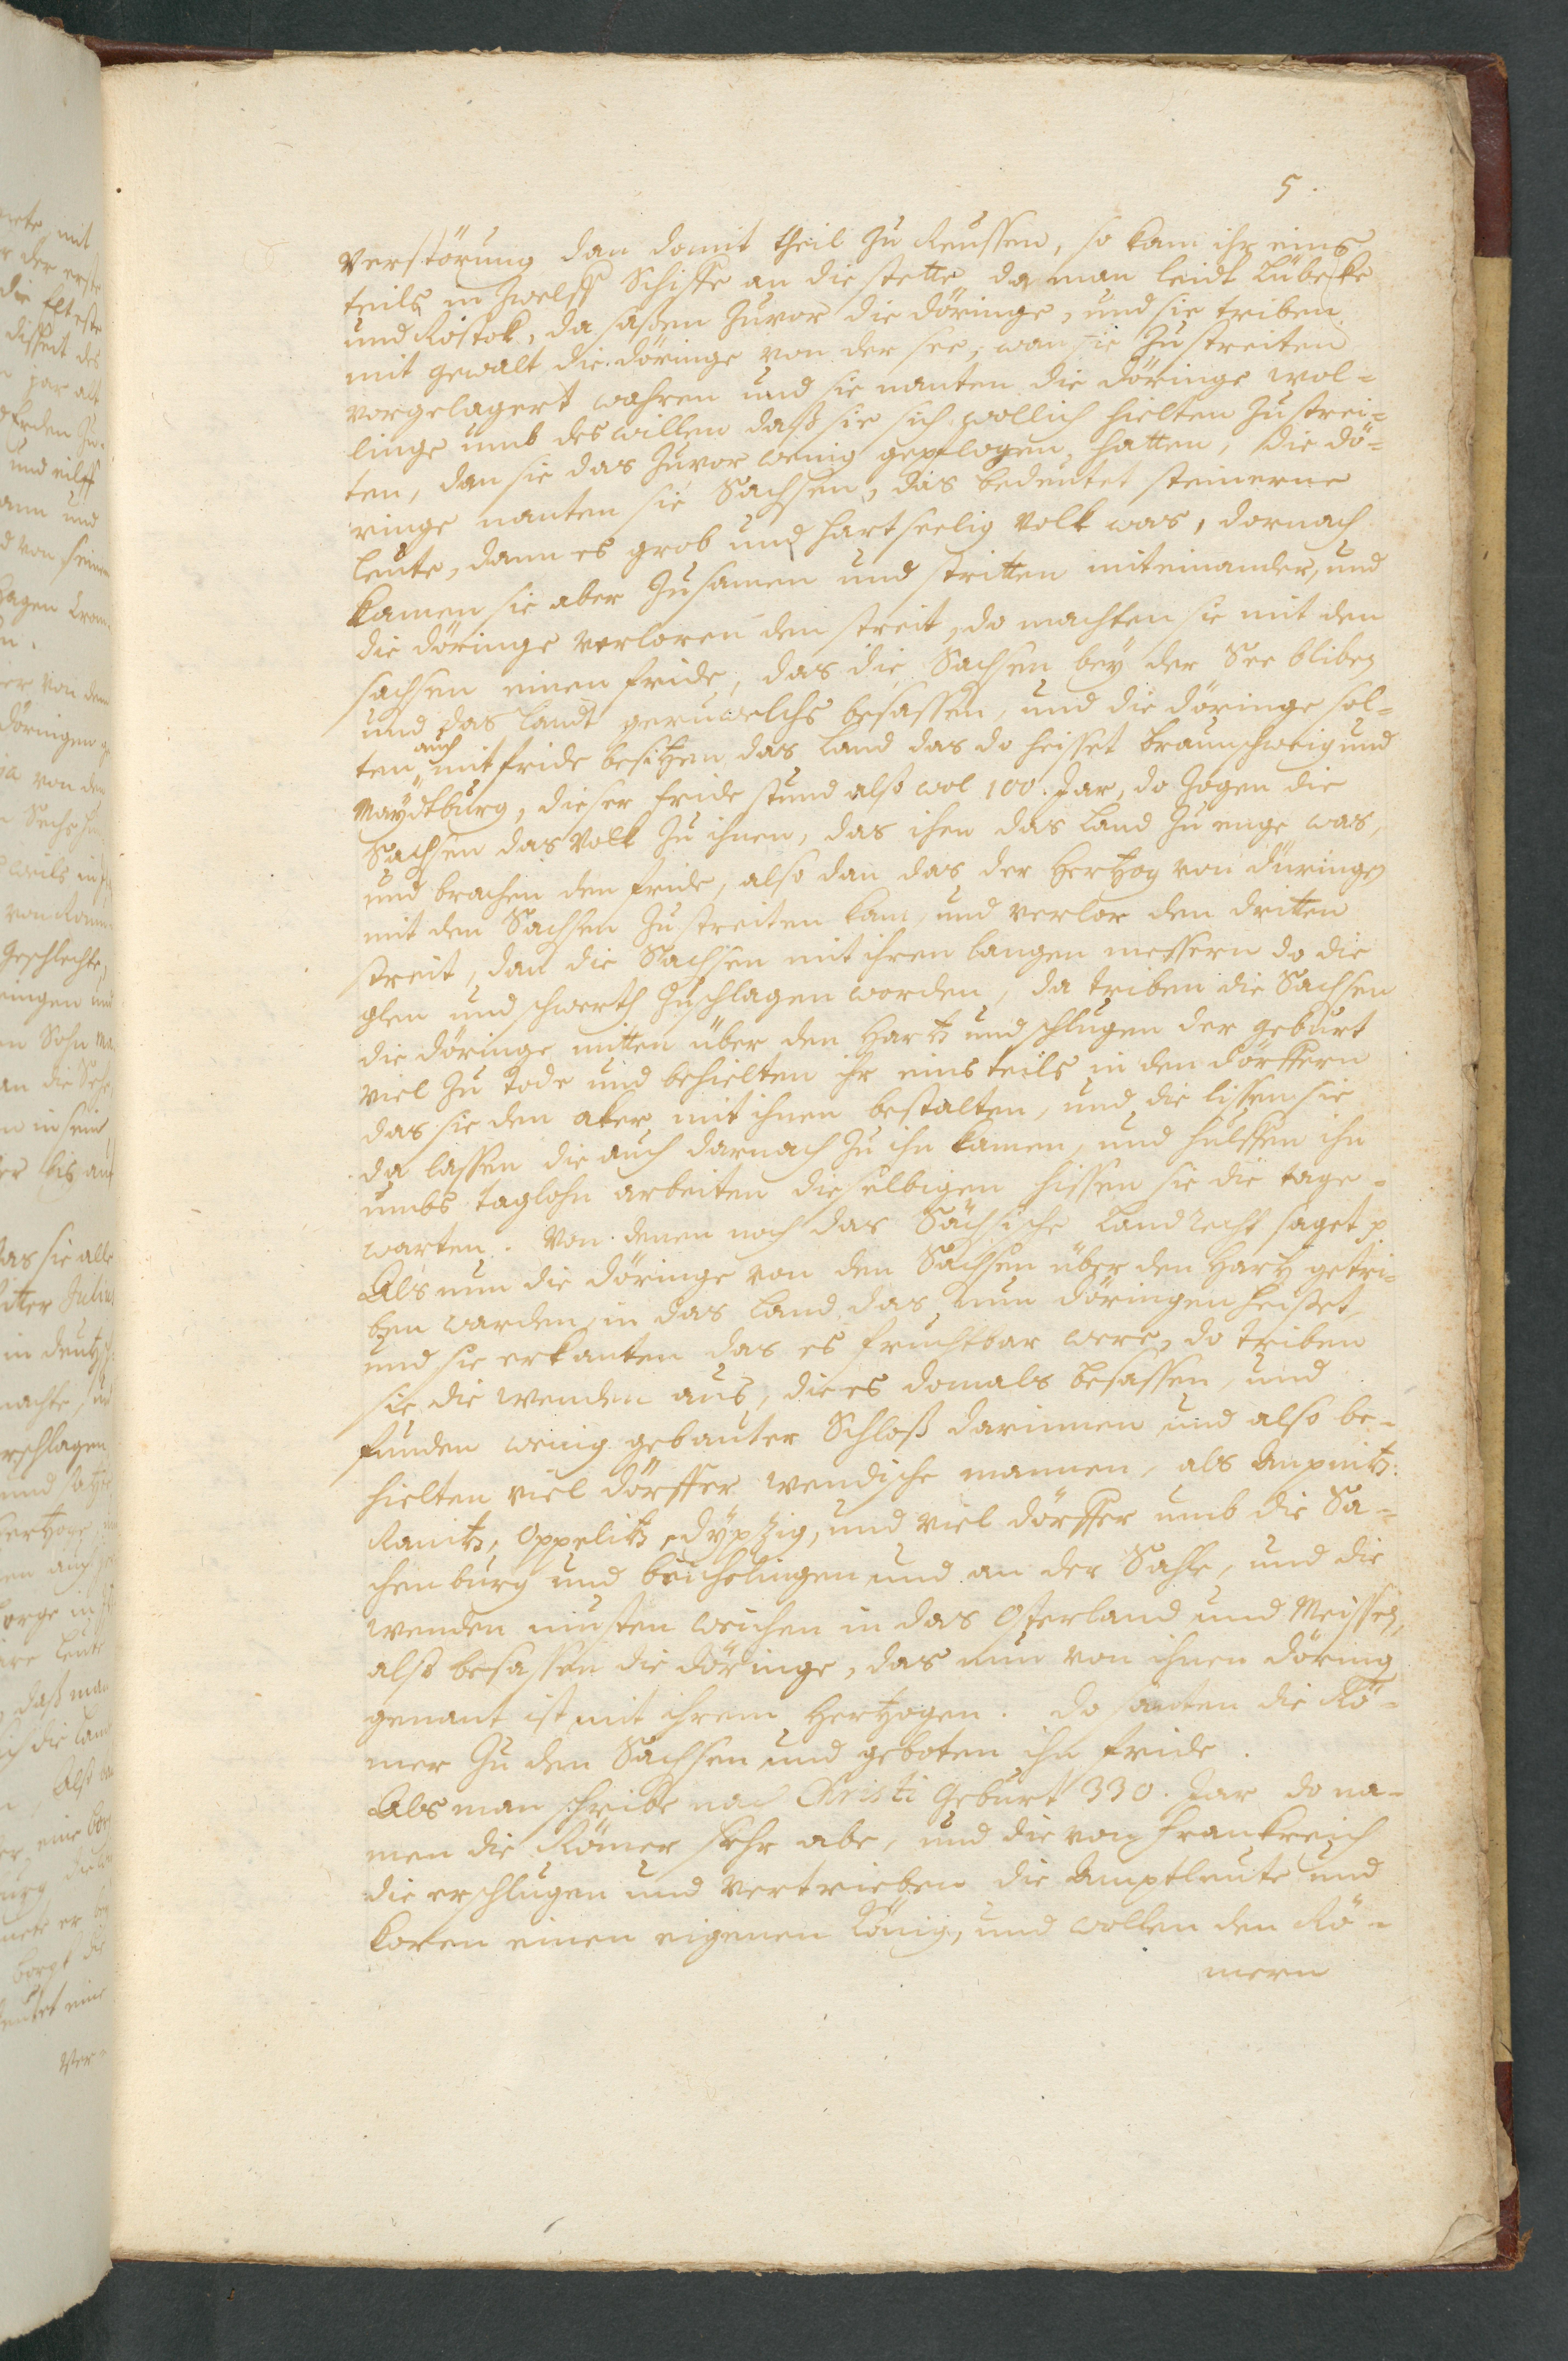 5.
verstörung dan domit theil zu Reussen, so kam ihr eins
teils in zwelff Schiffe an die stette da man leidt Lübecke
und Rostok, da sassen zuvor die döringe, und sie triben
mit gewalt die döringe von der see, wan sie zu streiten
vorgelagert wahren und sie nanten die döringe wol-
linge umb des willen daß sie sich wollich hielten zu strei-
ten, dan sie das zuvor wenig gepflogen hatten, die dö-
ringe nanten sie Sachsen, das bedeutet steinerne
leute, dann es grob und hartseelig Volk was, dornach
kamen sie aber zusamen und stritten miteinander, und
die döringe verloren den streit, do machten sie mit den
sachsen einen fride, das die Sachsen bey der See bliben
und das landt geruwelichs besassen, und die döringe sol-
ten auch mit fride besitzen das Land das do heisset braunschweig und
Maydtburg, dieser fride stund also wol 100. Jar, do zogen die
Sachsen das Volk zu ihnen, das ihen das Land zu enge was,
und brachen den fride, also dan das der Hertzog von düringen
mit den Sachsen zu streiten kam, und verlor den dritten
streit, dan die Sachsen mit ihren langen messern do die
glen und schwerth zuschlagen worden, da triben die Sachsen
die döringe mitten über den Hartz und schlugen der geburt
viel zu tode und behielten ihr eins teils in den dörffern
das sie den aker mit ihnen bestalten, und die lissen sie
da lassen die auch darnach zu ihn kamen, und hulffen ihn
umbs taglohn arbeiten dieselbigen hissen sie die tage-
warten. Von denen noch das Sächsische Landrecht saget p
Als nun die döringe von den Sachsen über den Hartz getri-
ben warden, in das land das nun döringen heisset,
und sie erkanten das es fruchtbar were, do triben
sie die wenden aus, die es domals besassen, und
funden wenig gebauter Schloß darinnen und also be-
hielten viel dörffer wendische mannen, als
Ranitz, Oppelitz, dypzig, und viel dörffer umb die Sa-
chenburg und beichelingen und an der Sahle, und die
wenden musten weichen in das Osterland und Meissen,
also besassen die döringe, das nun von ihnen döring
genant ist mit ihrem Hertzogen. do santen die Rö-
mer zu den Sachsen und geboten ihn fride.
Als man schribe nach Christi Geburt 330. Jar do na-
men die Römer sehr abe, und die von Frankreich
die erschlugen und vertrieben die Amptleute und
koren einen eigenen König, und wollen den Rö-
mern